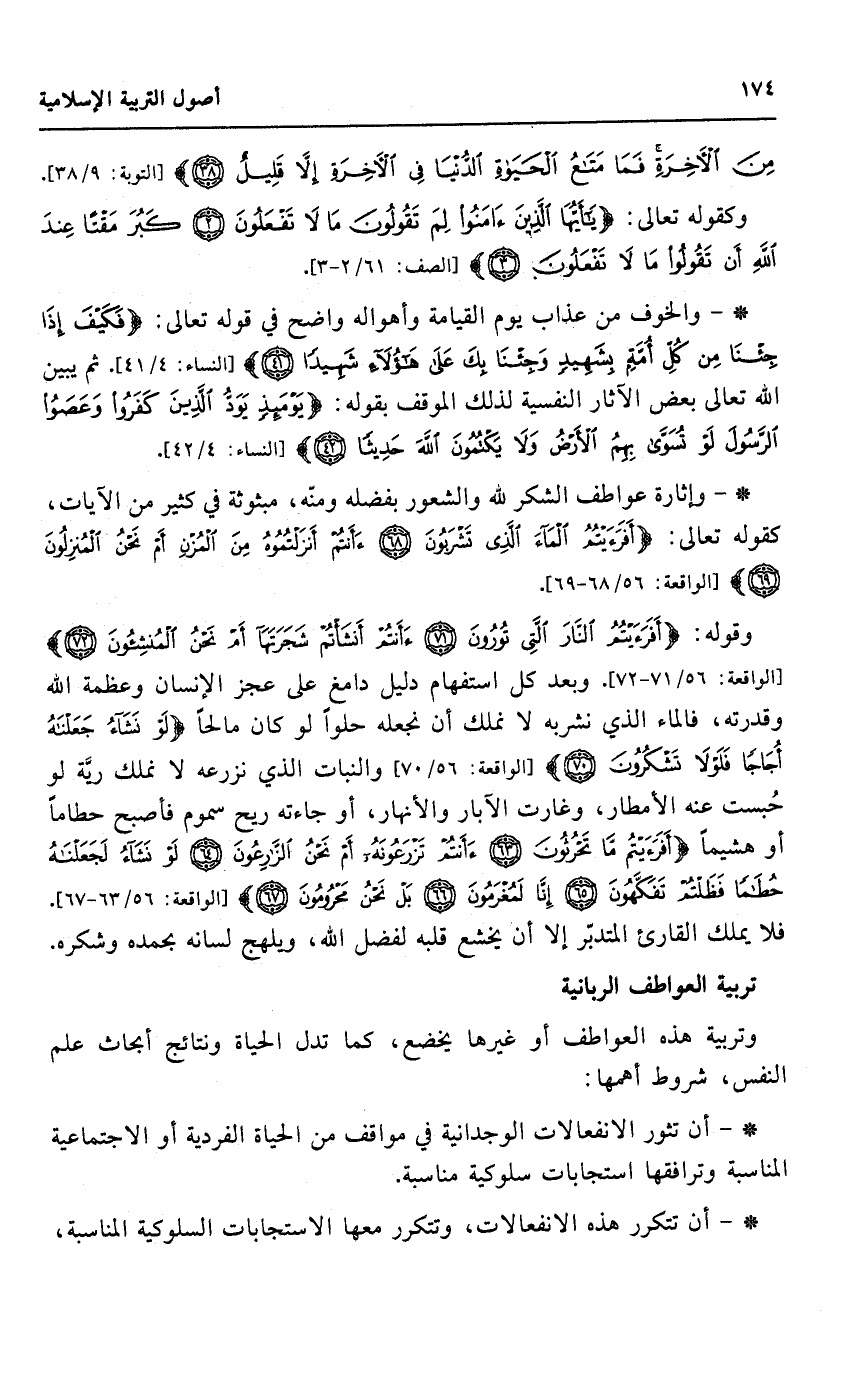 ١٧٤
أصول التربية الإسلامية
مِنَ ٱلْأَخِرَةِ ۚ فَمَا مَتَٰعُ ٱلْحَيَوٰةِ ٱلدُّنْيَا فِى ٱلْأَخِرَةِ إِلَّا قَلِيلٌ ﴿٣٨﴾﴾ [التوبة: ٩/٣٨].
وكقوله تعالى: ﴿يَٰٓأَيُّهَا ٱلَّذِينَ ءَامَنُوا۟ لِمَ تَقُولُونَ مَا لَا تَفْعَلُونَ ﴿٢﴾ كَبُرَ مَقْتًا عِندَ
ٱللَّهِ أَن تَقُولُوا۟ مَا لَا تَفْعَلُونَ ﴿٣﴾﴾ [الصف: ٦١/٢-٣].
* - والخوف من عذاب يوم القيامة وأهواله واضح في قوله تعالى: ﴿فَكَيْفَ إِذَا
جِئْنَا مِن كُلِّ أُمَّةٍۭ بِشَهِيدٍ وَجِئْنَا بِكَ عَلَىٰ هَٰٓؤُلَآءِ شَهِيدًا ﴿٤١﴾﴾ [النساء: ٤/٤١]. ثم يبين
الله تعالى بعض الآثار النفسية لذلك الموقف بقوله: ﴿يَوْمَئِذٍ يَوَدُّ ٱلَّذِينَ كَفَرُوا۟ وَعَصَوُا۟
ٱلرَّسُولَ لَوْ تُسَوَّىٰ بِهِمُ ٱلْأَرْضُ وَلَا يَكْتُمُونَ ٱللَّهَ حَدِيثًا ﴿٤٢﴾﴾ [النساء: ٤/٤٢].
* - وإثارة عواطف الشكر لله والشعور بفضله ومنّه، مبثوثة في كثير من الآيات،
كقوله تعالى: ﴿أَفَرَءَيْتُمُ ٱلْمَآءَ ٱلَّذِى تَشْرَبُونَ ﴿٦٨﴾ ءَأَنتُمْ أَنزَلْتُمُوهُ مِنَ ٱلْمُزْنِ أَمْ نَحْنُ ٱلْمُنزِلُونَ
﴿٦٩﴾﴾ [الواقعة: ٥٦/٦٨-٦٩].
وقوله: ﴿أَفَرَءَيْتُمُ ٱلنَّارَ ٱلَّتِى تُورُونَ ﴿٧١﴾ ءَأَنتُمْ أَنشَأْتُمْ شَجَرَتَهَآ أَمْ نَحْنُ ٱلْمُنشِـُٔونَ ﴿٧٢﴾﴾
[الواقعة: ٥٦/٧١-٧٢]. وبعد كل استفهام دليل دامغ على عجز الإنسان وعظمة الله
وقدرته، فالماء الذي نشربه لا نملك أن نجعله حلواً لو كان مالحاً ﴿لَوْ نَشَآءُ جَعَلْنَٰهُ
أُجَاجًا فَلَوْلَا تَشْكُرُونَ ﴿٧٠﴾﴾ [الواقعة: ٥٦/٧٠] والنبات الذي نزرعه لا نملك ريَّة لو
حُبست عنه الأمطار، وغارت الآبار والأنهار، أو جاءته ريح سموم فأصبح حطاماً
أو هشيماً ﴿أَفَرَءَيْتُم مَّا تَحْرُثُونَ ﴿٦٣﴾ ءَأَنتُمْ تَزْرَعُونَهُۥٓ أَمْ نَحْنُ ٱلزَّٰرِعُونَ ﴿٦٤﴾ لَوْ نَشَآءُ لَجَعَلْنَٰهُ
حُطَٰمًا فَظَلْتُمْ تَفَكَّهُونَ ﴿٦٥﴾ إِنَّا لَمُغْرَمُونَ ﴿٦٦﴾ بَلْ نَحْنُ مَحْرُومُونَ ﴿٦٧﴾﴾ [الواقعة: ٥٦/٦٣-٦٧].
فلا يملك القارئ المتدبّر إلا أن يخشع قلبه لفضل الله، ويلهج لسانه بحمده وشكره.
تربية العواطف الربانية
وتربية هذه العواطف أو غيرها يخضع، كما تدل الحياة ونتائج أبحاث علم
النفس، شروط أهمها:
* - أن تثور الانفعالات الوجدانية في مواقف من الحياة الفردية أو الاجتماعية
المناسبة وترافقها استجابات سلوكية مناسبة.
* - أن تتكرر هذه الانفعالات، وتتكرر معها الاستجابات السلوكية المناسبة،